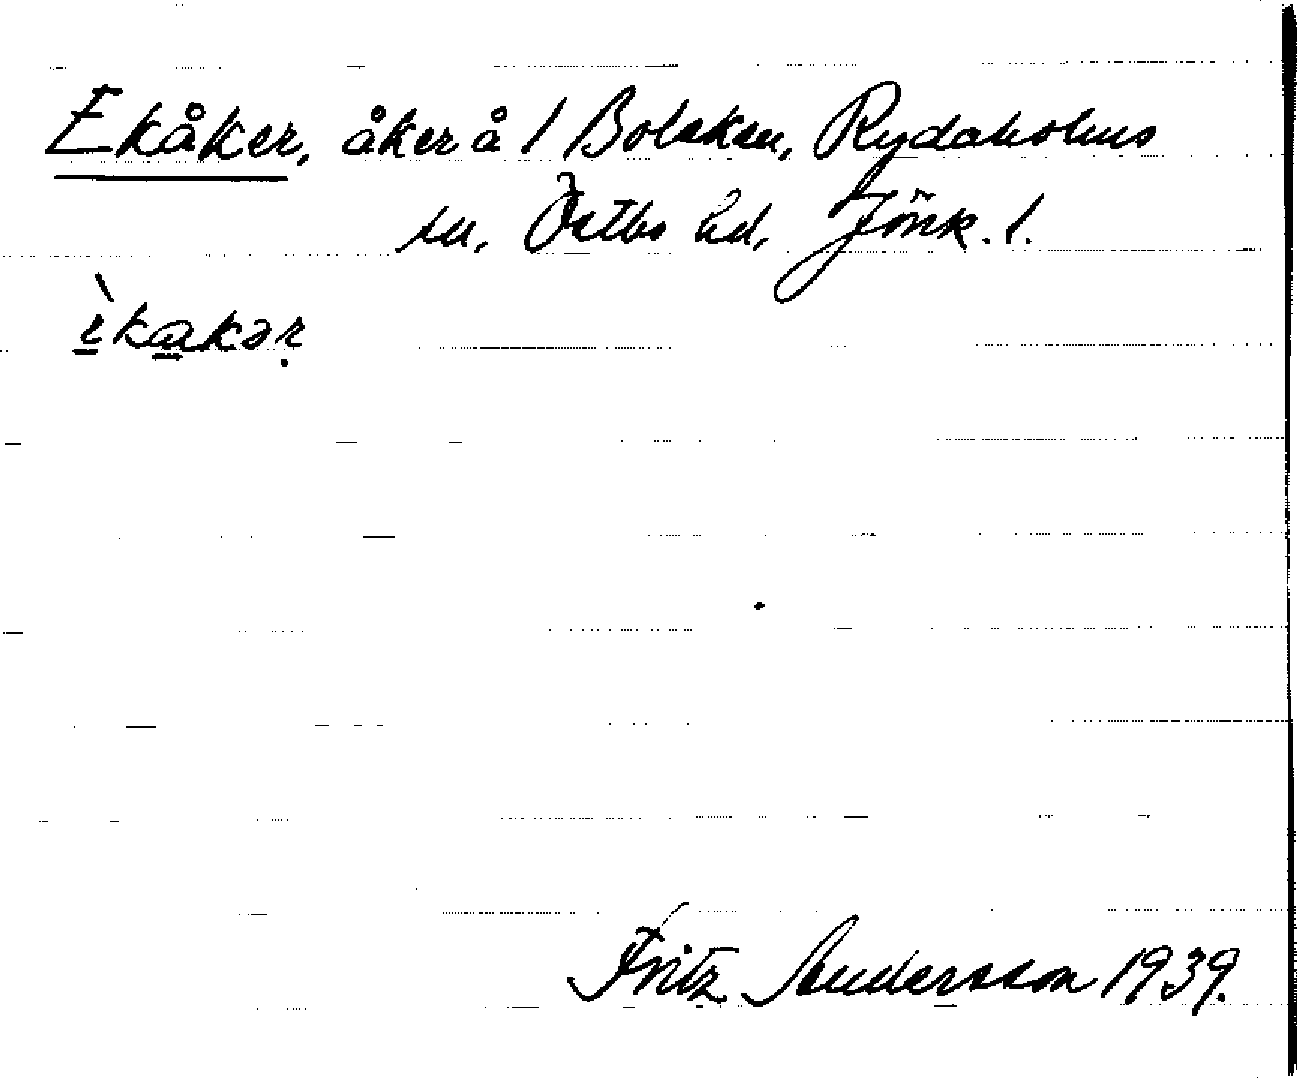 Ekåker, åker å 1 Bolskan, Rydaholms
sn, Östbo hd, Jönk. l.
Fritz Andersson 1939.